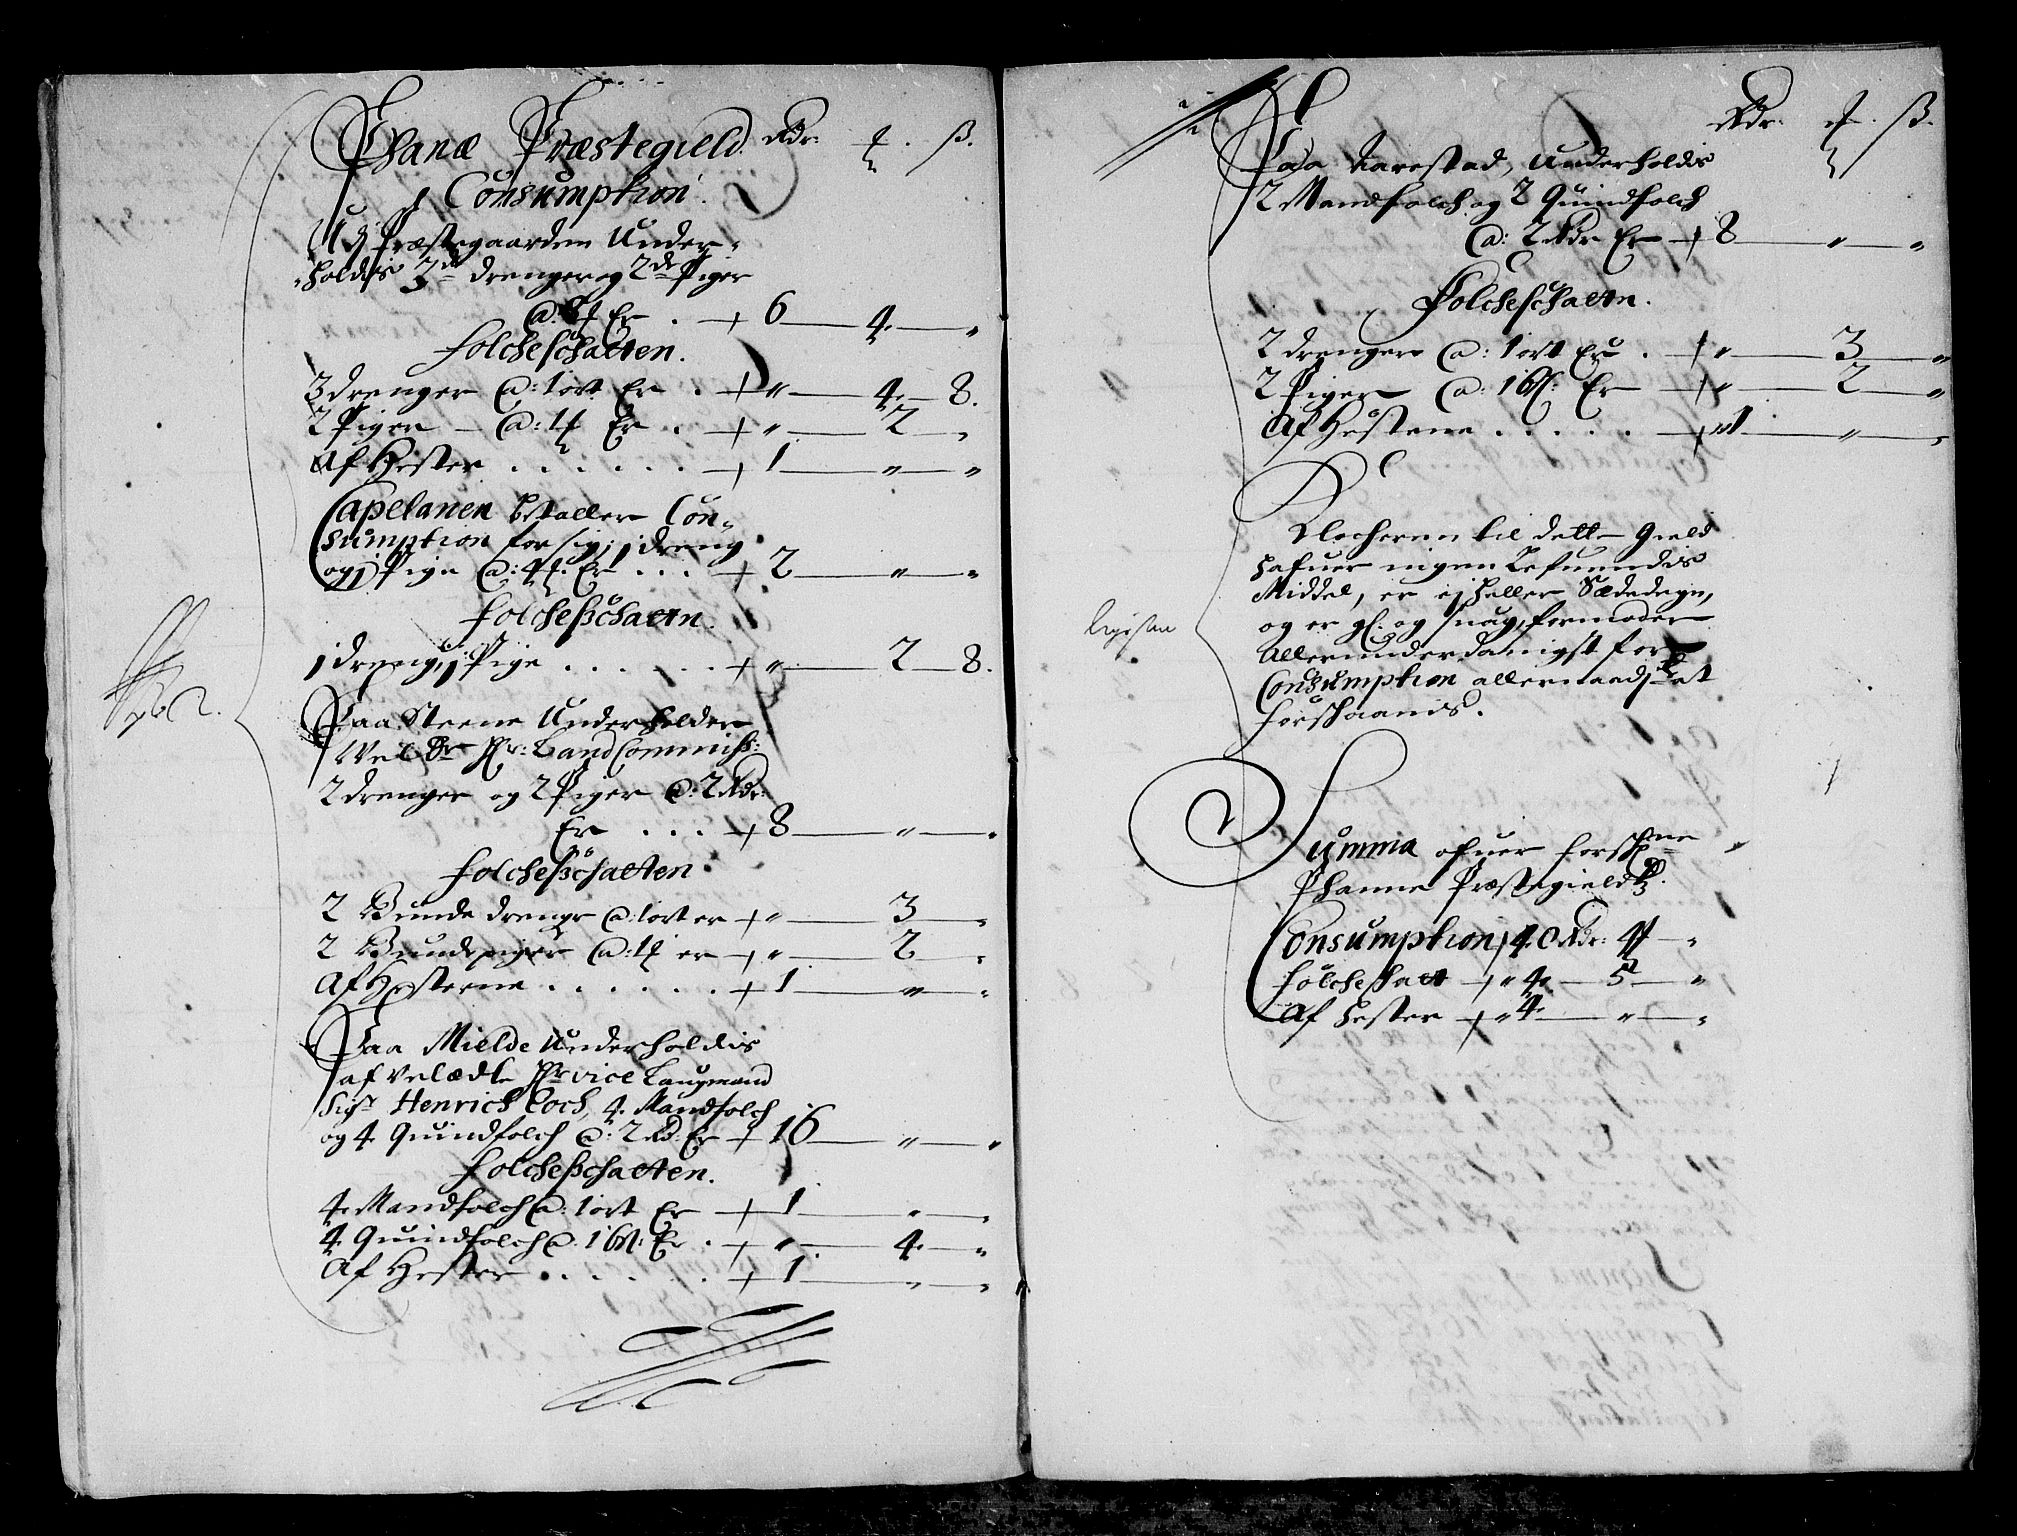 Phanæ Præstegield Rdr: ₰. ß.
Consumption.
Ved Præstegaarden Under-
holdis 3de drenger og 2de Piger
a: 8 ₰ Er . + 6 — 4 — „
Folcheschatten.
3 drenger a: 1 ort Er . + „ — 4 — 8.
2 Piger — a: 1 ₰ Er . + „ — 2 — „
Af Hester . . . . . . + 1 — „ — „
Capelanen betaller Con-
sumption for sig, 1 dreng
og 1 Pige a: 4 ₰. Er . . . + 2 — „ — „
Folcheschattn.
1 dreng, 1 Pige . . . . . + „ — 2 — 8.
Paa Steene Underholder
Vel Br Hr: Land Commiss:
2 drenger og 2 Piger a: 2 Rdr:
Er . . . + 8 — „ — „
Folcheschatten.
2 Bunde drenge a: 1 ort er + „ — 3 — „
2 Bundepiger a: 1 ₰ er + „ — 2 — „
Af Hesterne . . . . . . + 1 — „ — „
Paa Mielde Underholdis
af Velædle Hr vice Laugmand
Sigr Henrich Coch, 4 Mandfolch
og 4 Quindfolch a: 2 Rd: Er + 16 — „ — „
Folcheschatten.
4 Mandfolch a: 1 ort Er + 1 — „ — „
4 Quindfolch a: 16 ß: Er . + „ — 4 — „
Af Hester . . . . . . + 1 — „ — „
Rdr. ₰. ß.
Paa Narestad, Underholdis
2 Mandfolch og 2 Quindfolch
a: 2 Rdr Er + 8 — „ — „
Folcheschattn.
2 drenger a: 1 ort Er . + „ — 3 — „
2 Piger a: 16 ß: Er + „ — 2 — „
Af Hestene . . . . . + 1 — „ — „
Klocheren til dette Gield
hafuer ingen Lefuendis
Middel, er ej heller Sædedegn,
og er gl. og suag, formoder
Allerunderdanigst for
Consumption allernaadigst at
forschaanis.
Summa ofuer forschne
Phanne Præstegield
Consumption + 40 Rdr: 4 ₰ — „
Folcheschatt + „ 4 — 5 — „
Af Hester + „ 4 — „ — „